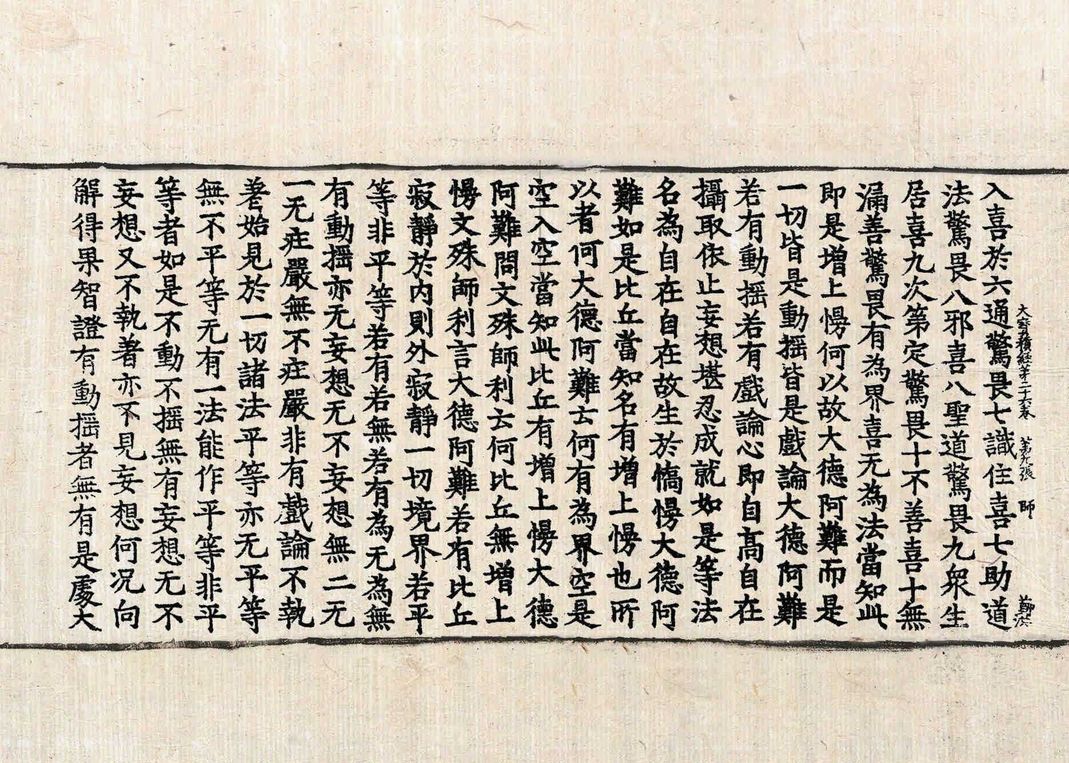 大寶積經第二十六卷 第九張 師
入喜於六通驚畏七識住喜七助道
法驚畏八邪喜八聖道驚畏九衆生
居喜九次第定驚畏十不善喜十無
漏善驚畏有為界喜无為法當知此
即是增上慢何以故大德阿難而是
一切皆是動揺皆是戲論大德阿難
若有動揺若有戲論心即自高自在
攝取依止妄想堪忍成就如是等法
名為自在自在故生於憍慢大德阿
難如是比丘當知名有增上慢也所
以者何大德阿難云何有為界空是
空入空當知此比丘有增上慢大德
阿難問文殊師利云何比丘無增上
慢文殊師利言大德阿難若有比丘
寂靜於内則外寂靜一切境界若平
等非平等若有若無若有為无為無
有動揺亦无妄想无不妄想無二无
一无疘嚴無不疘嚴非有戲論不執
著始見於一切諸法平等亦无平等
無不平等无有一法能作平等非平
等者如是不動不揺無有妄想无不
妄想又不執著亦不見妄想何况向
解得果智證有動揺者無有是處大